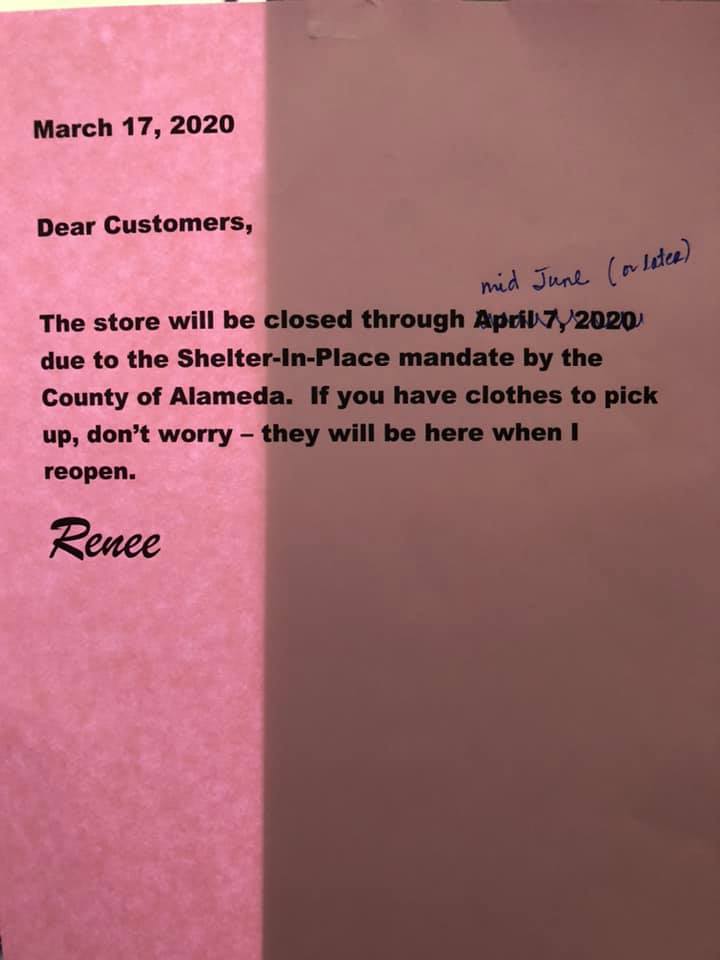 March 17, 2020
Dear Customers,
mid June (or later)
The store will be closed through April 7, 2020
due to the Shelter-In-Place mandate by the
County of Alameda. If you have clothes to pick
up, don’t worry – they will be here when I
reopen.
Renee